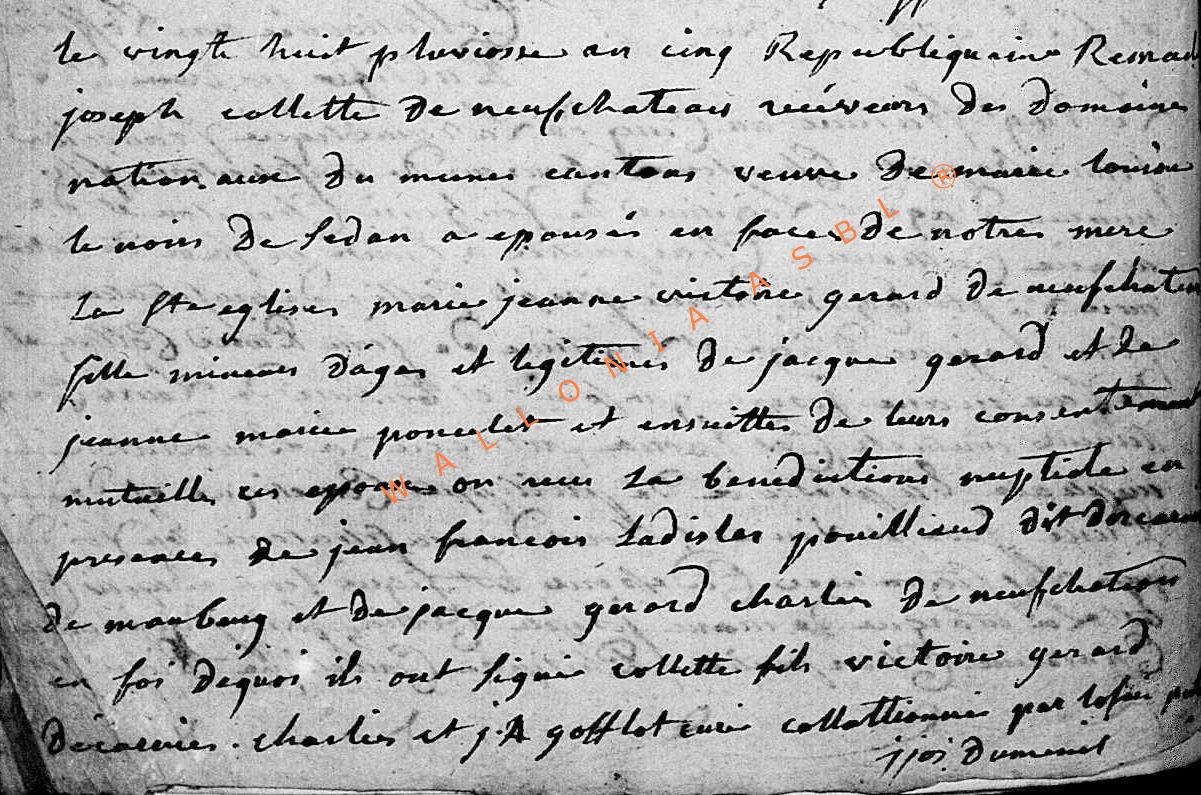 le vingt huit pluviosse an cinq Republiquain Remacl
joseph collette De neufchateau recéveurs des domaines
nationaux du meme cantons veuve De marie louise
le noir De sedan a epousés en face De notres mere
La Ste eglises marie jeanne victoire gerard De neufchateau
fille mineures Dágas et legitimes De jacque gerard et De
jeanne marie poncelet et ensuittes De leurs consentement
mutuelles ces epoux on recu La benedictions nuptiale en
presences De jean francois Ladislas pouilliaud dit
De maubeug et De jacque gerard charlier De neufchateau
en foi déquoi ils ont signé collette fils victoire gerard
charlier et j. A gofflot curé collattionnée par
jjos Dumenil
WALLONIA ASBL ®